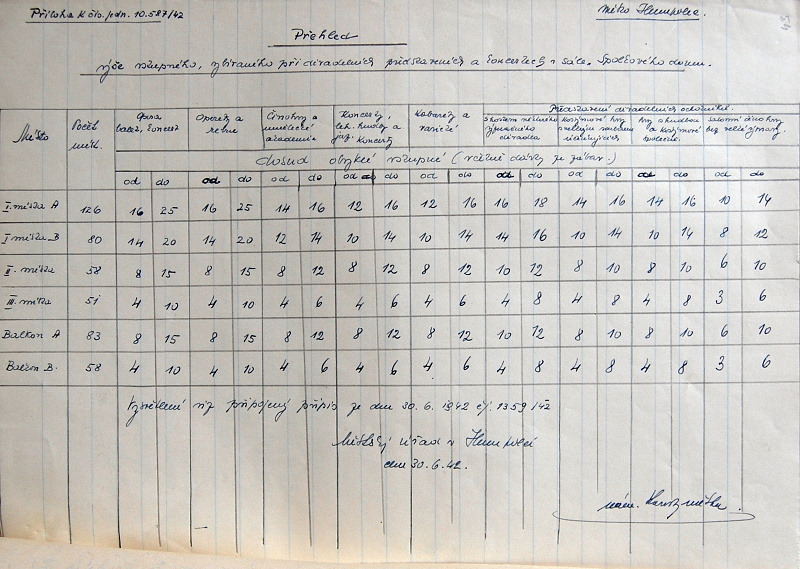 Příloha k čís. jedn. 10.587/42
Město Humpolec.
Přehled
výše vstupného, vybíraného při divadelních představeních a koncertech v sále Spolkového domu.
Místo | Počet míst. | Opera balet, koncert | Operety a revue | Činohry a umělecké akademie | Koncerty, lehké hudby a jaz. koncerty | Kabarety a varieté | Představení divadelních ochotníků.
dosud obvyklé vstupné (včetně dávky ze zábav.)
od do od do od do od do od do od do od do od do od do
I. místa A 126 16 25 16 25 14 16 12 16 12 16 16 18 14 16 14 16 10 14
I. místa B 80 14 20 14 20 12 14 10 14 10 14 14 16 10 14 10 14 8 12
II. místa 58 8 15 8 15 8 12 8 12 8 12 10 12 8 10 8 10 6 10
III. místa 51 4 10 4 10 4 6 4 6 4 6 4 8 4 8 4 8 3 6
Balkon A 83 8 15 8 15 8 12 8 12 8 12 10 12 8 10 8 10 6 10
Balkon B. 58 4 10 4 10 4 6 4 6 4 6 4 8 4 8 4 8 3 6
Vysvětlení viz připojený přípis ze dne 30.6.1942 čj. 1359/42
Městský úřad v Humpolci
dne 30.6.42.